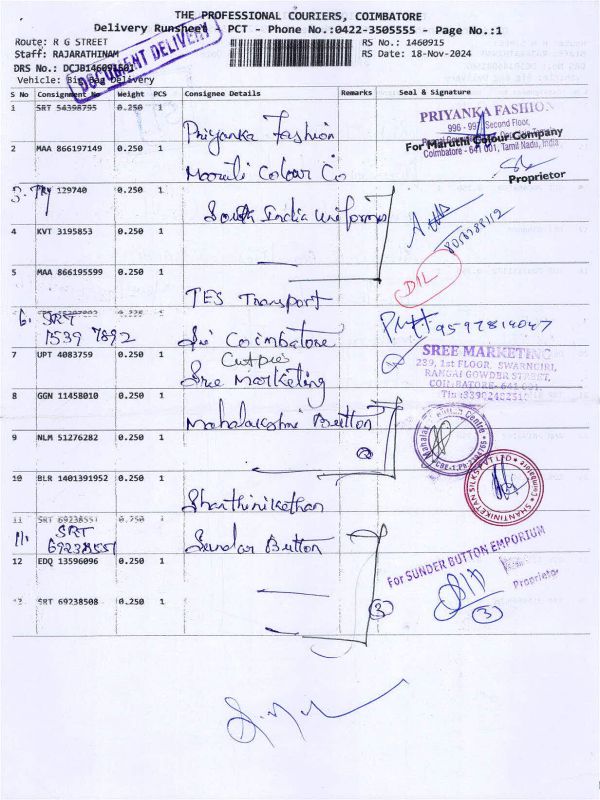 THE PROFESSIONAL COURIERS, COIMBATORE
Delivery Runsheet - PCT - Phone No.:0422-3505555 - Page No.:1
Route: R G STREET
RS No.: 1460915
Staff: RAJARATHINAM
RS Date: 18-Nov-2024
DRS No.:
Vehicle: Big Bag Delivery
DOCUMENT DELIVERY
S No Consignment No Weight PCS Consignee Details Remarks Seal & Signature
1 SRT 54398795 0.250 1 Priyanka Fashion
PRIYANKA FASHION
996 - 997 Second Floor,
Coimbatore - 641 001, Tamil Nadu, India
2 MAA 866197149 0.250 1 Maruti Colour Co
For Maruthi Colour Company
Proprietor
3. PRY 129740 0.250 1 South India Uniforms
4 KVT 3195853 0.250 1
8098288112
5 MAA 866195599 0.250 1 TES Transport
D/L
6. SRT 1539 7892 Sri Coimbatore
Cutpies
9597814047
7 UPT 4083759 0.250 1 Sree Marketing
SREE MARKETING
239, 1st FLOOR, SWARNGIRI,
RANGAI GOWDER STREET,
COIMBATORE- 641 001.
8 GGN 11458010 0.250 1 Mahalakshmi Button
9 NLM 51276282 0.250 1
2
10 BLR 1401391952 0.250 1 Shanthinikethan
SHANTINIKETAN SILKS PVT LTD
Coimbatore
11 SRT 69238551 0.250 1
11. SRT 69238551 Sundar Button
12 EDQ 13596096 0.250 1
For SUNDER BUTTON EMPORIUM
Proprietor
13 SRT 69238508 0.250 1
3
3